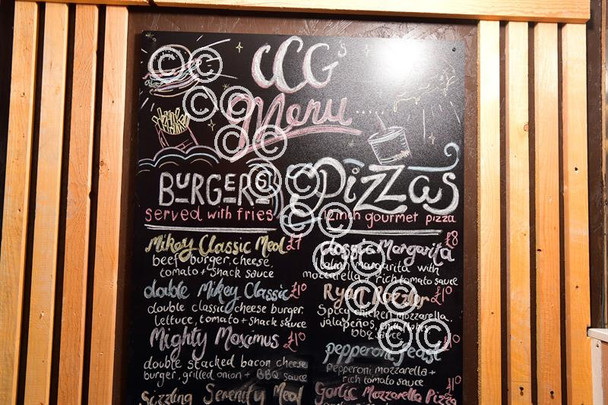 CCG's
Menu...
BURGERS
served with fries
Mikey Classic Meal £7
beef burger, cheese,
tomato + snack sauce
double Mikey Classic £10
double classic cheese burger,
lettuce, tomato + snack sauce
Mighty Maximus £10
double stacked bacon cheese
burger, grilled onion + BBQ sauce
Sizzling Serenity Meal
Pizzas
12inch gourmet pizza
Classic Margarita £8
margarita with
mozzarella + rich tomato sauce
£10
Spicy chicken, mozzarella,
jalapeños,
BBQ sauce
pepperoni feast £10
Pepperoni, mozzarella +
rich tomato sauce
Garlic Mozzarella Pizza £10